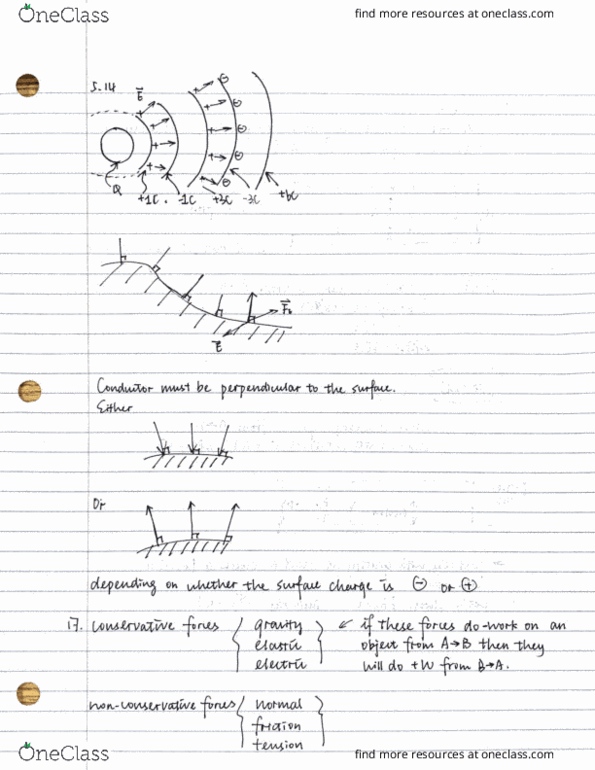 OneClass
find more resources at oneclass.com
5.14
E
Q
+1C.
-1C
+3C
-3C
+6C
E
Conductor must be perpendicular to the surface.
Either
Or
depending on whether the surface charge is ⊖ or ⊕
17. conservative forces { gravity } ↙ if these forces do -work on an
elastic object from A→B then they
electric will do +W from B→A.
non-conservative forces { normal
friction
tension
OneClass
find more resources at oneclass.com